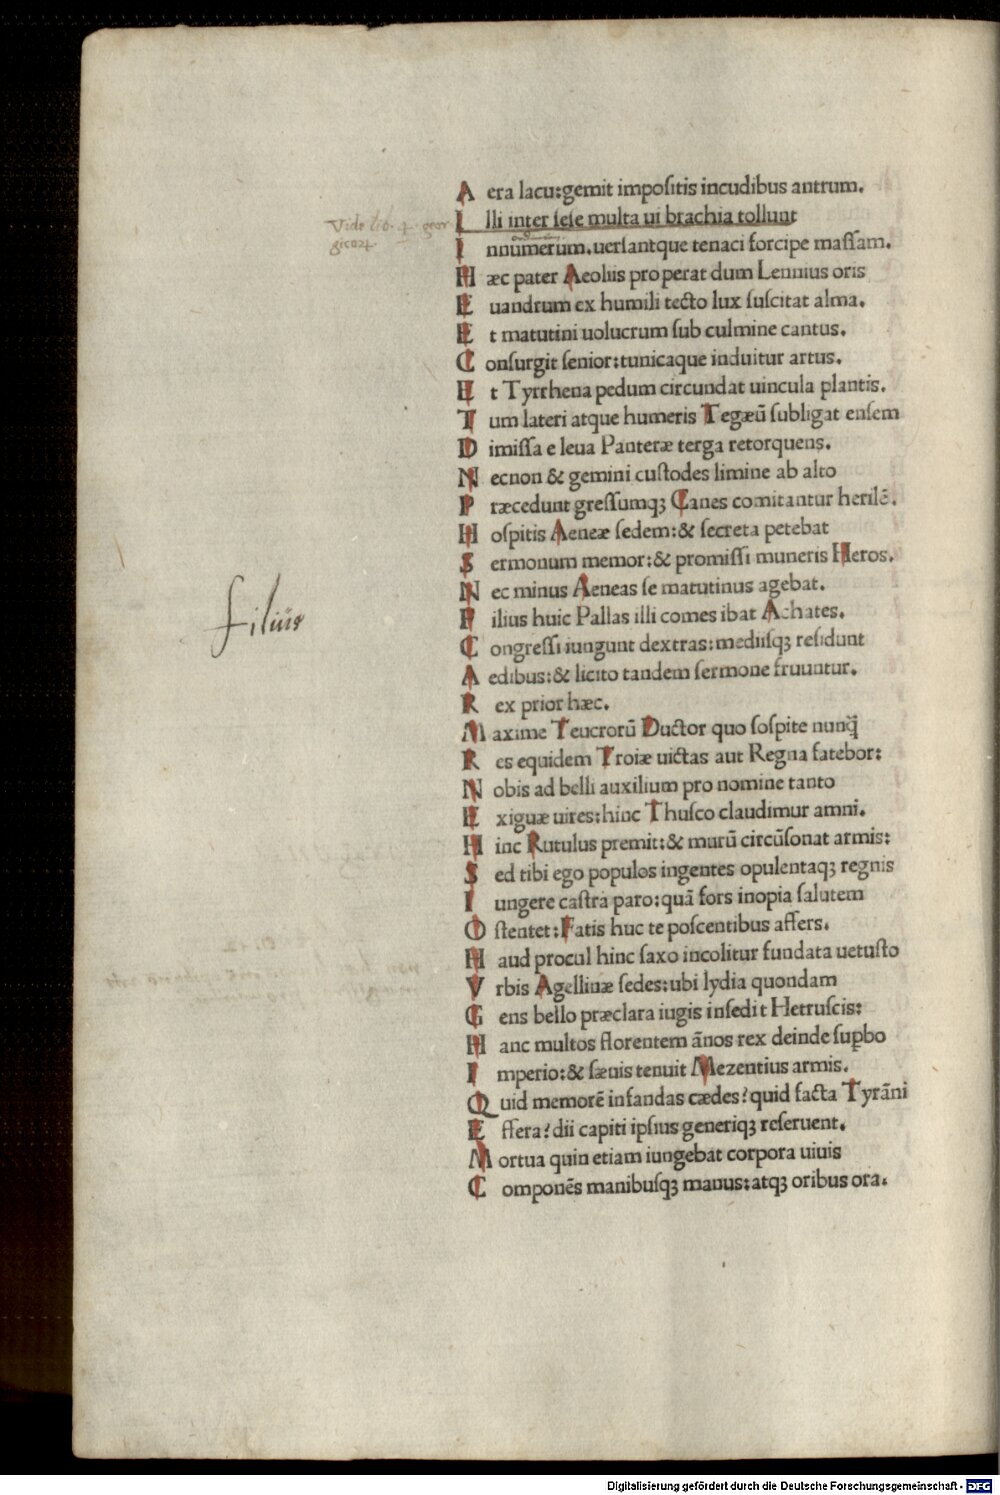 A era lacu:gemit impoſitis incudibus antrum.
Vide lib. 4. geor
gicoꝝ.
I lli inter ſeſe multa ui brachia tollunt
I nnumerum.uerſantque tenaci forcipe maſſam.
H æc pater Aeoliis properat dum Lemnius oris
E uandrum ex humili tecto lux ſuſcitat alma.
E t matutini uolucrum ſub culmine cantus.
C onſurgit ſenior:tunicaque induitur artus.
E t Tyrrhena pedum circundat uincula plantis.
T um lateri atque humeris Tegæū ſubligat enſem
D imiſſa e leua Panteræ terga retorquens.
N ecnon & gemini cuſtodes limine ab alto
P ræcedunt greſſumqꝫ Canes comitantur herilē.
H oſpitis Aeneæ ſedem:& ſecreta petebat
S ermonum memor:& promiſſi muneris Heros.
N ec minus Aeneas ſe matutinus agebat.
Filius
F ilius huic Pallas illi comes ibat Achates.
C ongreſſi iungunt dextras:mediiſqꝫ reſidunt
A edibus:& licito tandem ſermone fruuntur.
R ex prior hæc.
M axime Teucrorū Ductor quo ſoſpite nunq̄
R es equidem Troiæ uictas aut Regna fatebor:
N obis ad belli auxilium pro nomine tanto
E xiguæ uires:hinc Thuſco claudimur amni.
H inc Rutulus premit:& murū circūſonat armis:
S ed tibi ego populos ingentes opulentaqꝫ regnis
I ungere caſtra paro:quā fors inopia ſalutem
O ſtentet:Fatis huc te poſcentibus affers.
H aud procul hinc ſaxo incolitur fundata uetuſto
V rbis Agellinæ ſedes:ubi lydia quondam
G ens bello præclara iugis inſedit Hetruſcis:
H anc multos florentem ānos rex deinde ſuꝑbo
I mperio:& ſæuis tenuit Mezentius armis.
Q uid memorē infandas cædes?quid facta Tyrāni
E ffera?dii capiti ipſius generiqꝫ reſeruent.
M ortua quin etiam iungebat corpora uiuis
C omponēs manibuſqꝫ manus:atqꝫ oribus ora.
Digitalisierung gefördert durch die Deutsche Forschungsgemeinschaft - DFG